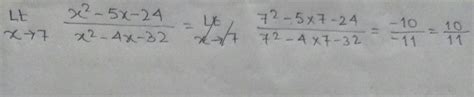 Lt x→7 x²-5x-24 / x²-4x-32 = Lt x→7 7²-5×7-24 / 7²-4×7-32 = -10 / -11 = 10 / 11